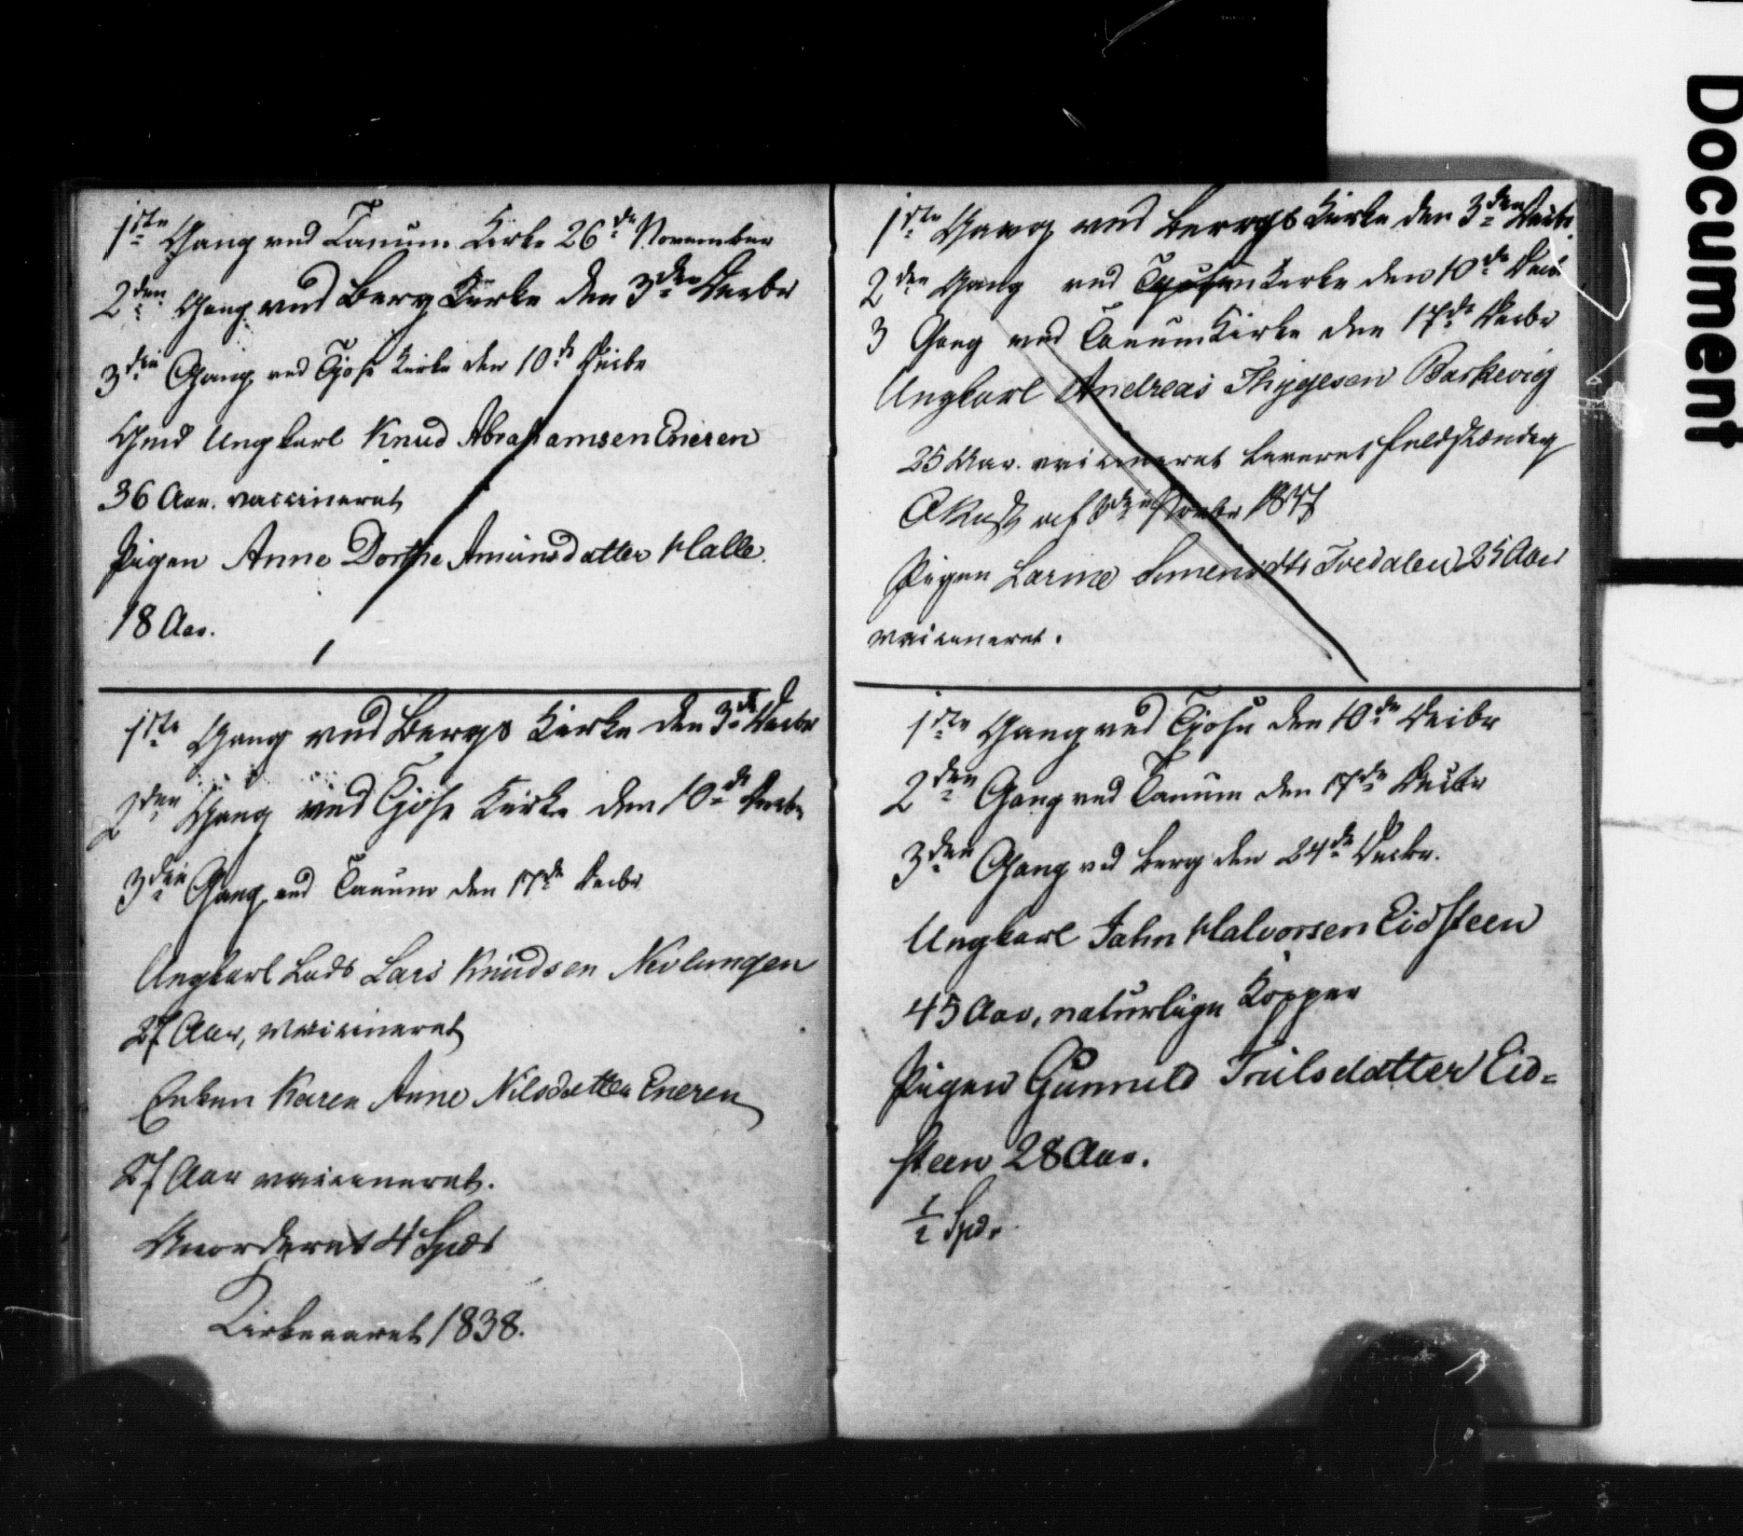 1ste Gang ved Tanum Kirke 26de November
2den Gang ved Berg Kirke den 3den Decbr
3die Gang ved Tjøse Kirke den 10de Decbr
Gmd Ungkarl Knud Abrahamsen Eneren
36 Aar. vaccineret
Pigen Anne Dorthe Amunsdatter Halle
18 Aar.
1ste Gang ved Bergs Kirke den 3de Decbr
2den Gang ved Tjøse Kirke den 10de Decbr
3die Gang ved Tanum den 17de Decbr
Ungkarl Lods Lars Knudsen Nevlungen
27 Aar, vaccineret
Enken Karen Anne Nilsdatter Eneren
27 Aar vaccineret.
4 Spd
Kirkeaaret 1838.
1ste Gang ved Bergs Kirke den 3den Decbr.
2den Gang ved Kirke den 10de Decbr
3 Gang ved Tanum Kirke den 17de Decbr
Ungkarl Andreas Thygesen Barkevig
25 Aar. vaccineret leveret
af 1837
Pigen Larine Simensdtr Tvedalen 25 Aar
vaccineret.
1ste Gang ved Tjøse den 10de Decbr
2den Gang ved Tanum den 17de Decbr
3den Gang ved Berg den 24de Decbr.
Ungkarl Jahn Halvorsen Eidsteen
45 Aar, naturlige Kopper
Pigen Gunnild Trulsdatter Eid=
steen 28 Aar.
1/2 Spd.
Document